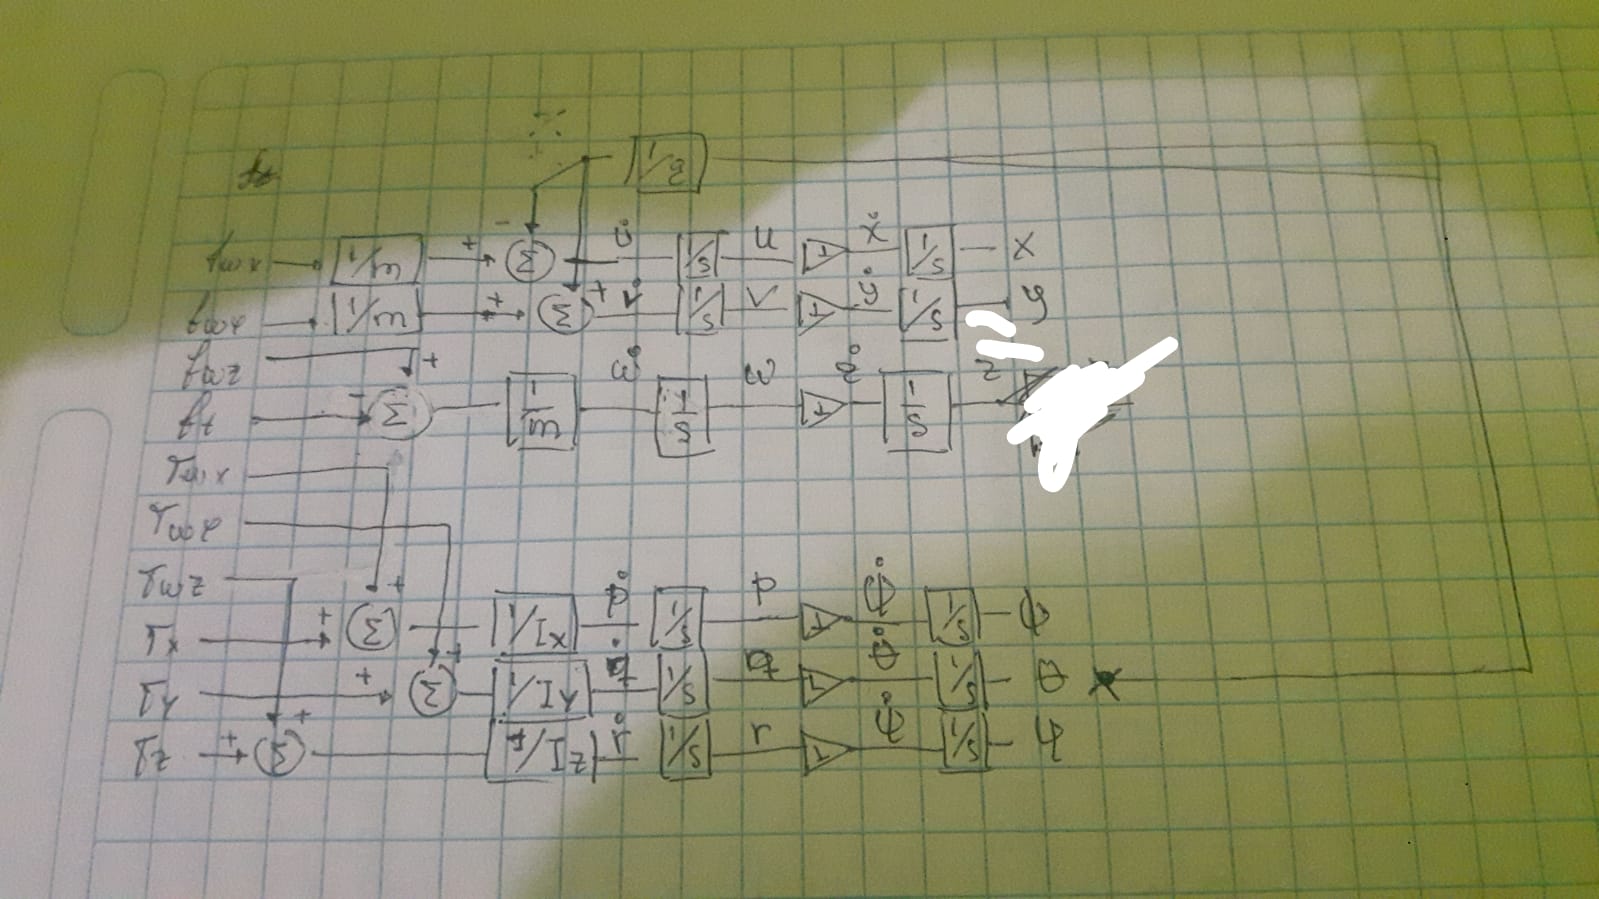 1/g
f_wx 1/m + − Σ u̇ 1/s u 1 ẋ 1/s x
f_wy 1/m + Σ + v̇ 1/s v 1 ẏ 1/s y
f_wz +
f_t − Σ 1/m ẇ 1/s w 1 ż 1/s z
τ_wx
τ_wy
τ_wz +
τ_x + Σ 1/Ix ṗ 1/s p 1 φ̇ 1/s φ
τ_y + Σ + 1/Iy q̇ 1/s q 1 θ̇ 1/s θ
τ_z + Σ + 1/Iz ṙ 1/s r 1 ψ̇ 1/s ψ